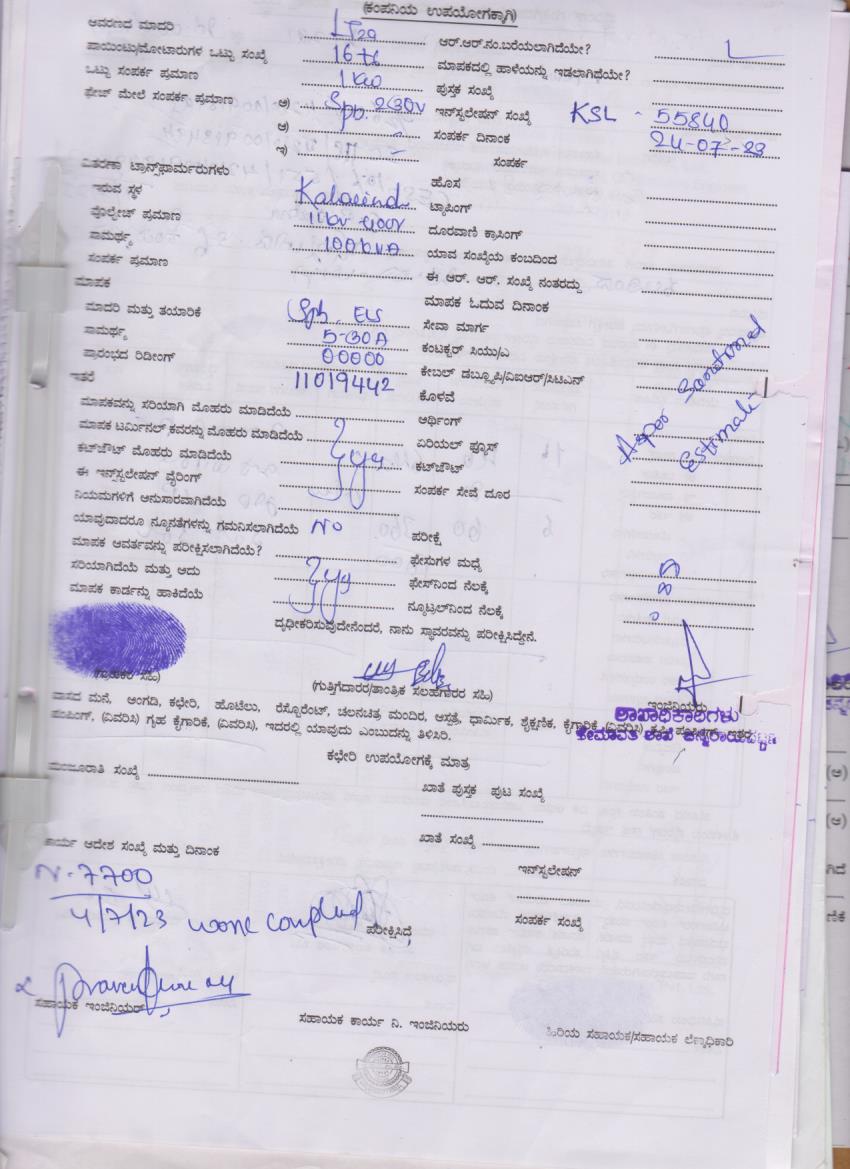 (ಕಂಪನಿಯ ಉಪಯೋಗಕ್ಕಾಗಿ)
ಆವರಣದ ಮಾದರಿ LT2a ಆರ್.ಆರ್.ನಂ.ಬರೆಯಲಾಗಿದೆಯೇ?
ಪಾಯಿಂಟು/ಮೋಟಾರುಗಳ ಒಟ್ಟು ಸಂಖ್ಯೆ 16+6 ಮಾಪಕದಲ್ಲಿ ಹಾಳೆಯನ್ನು ಇಡಲಾಗಿದೆಯೇ?
ಒಟ್ಟು ಸಂಪರ್ಕ ಪ್ರಮಾಣ 1 KW ಪುಸ್ತಕ ಸಂಖ್ಯೆ
ಫೇಜ್ ಮೇಲೆ ಸಂಪರ್ಕ ಪ್ರಮಾಣ ಅ) Sph. 230V ಇನ್‌ಸ್ಟಲೇಷನ್ ಸಂಖ್ಯೆ KSL - 55840
ಆ) - ಸಂಪರ್ಕ ದಿನಾಂಕ 24-07-23
ಇ) - ಸಂಪರ್ಕ
ವಿತರಣಾ ಟ್ರಾನ್ಸ್‌ಫಾರ್ಮರುಗಳು ಹೊಸ
ಇರುವ ಸ್ಥಳ ಟ್ಯಾಪಿಂಗ್
ವೋಲ್ಟೇಜ್ ಪ್ರಮಾಣ 11kv-400V ದೂರವಾಣಿ ಕ್ರಾಸಿಂಗ್
ಸಾಮರ್ಥ್ಯ 100kVA ಯಾವ ಸಂಖ್ಯೆಯ ಕಂಬದಿಂದ
ಸಂಪರ್ಕ ಪ್ರಮಾಣ ಈ ಆರ್. ಆರ್. ಸಂಖ್ಯೆ ನಂತರದ್ದು
ಮಾಪಕ ಮಾಪಕ ಓದುವ ದಿನಾಂಕ
ಮಾದರಿ ಮತ್ತು ತಯಾರಿಕೆ Sph. ಸೇವಾ ಮಾರ್ಗ
ಸಾಮರ್ಥ್ಯ 5-30A ಕಂಟಕ್ಟರ್ ಸಿಯು/ಎ
ಪ್ರಾರಂಭದ ರಿಡೀಂಗ್ 00000 ಕೇಬಲ್ ಡಬ್ಲ್ಯೂಪಿ/ವಿಐಆರ್/ಸಿಟಿಎನ್
ಇತರೆ 11019442 ಕೊಳವೆ
As per Sanctioned Estimate
ಮಾಪಕವನ್ನು ಸರಿಯಾಗಿ ಮೊಹರು ಮಾಡಿದೆಯೆ ಆರ್ಥಿಂಗ್
ಮಾಪಕ ಟರ್ಮಿನಲ್ ಕವರನ್ನು ಮೊಹರು ಮಾಡಿದೆಯೆ ಏರಿಯಲ್ ಫ್ಯೂಸ್
ಕಟ್‌ಔಟ್ ಮೊಹರು ಮಾಡಿದೆಯೆ ಕಟ್‌ಔಟ್
ಈ ಇನ್‌ಸ್ಟಲೇಷನ್ ವೈರಿಂಗ್ ಸಂಪರ್ಕ ಸೇವೆ ದೂರ
ನಿಯಮಗಳಿಗೆ ಅನುಸಾರವಾಗಿದೆಯೆ
ಯಾವುದಾದರೂ ನ್ಯೂನತೆಗಳನ್ನು ಗಮನಿಸಲಾಗಿದೆಯೆ NO ಪರೀಕ್ಷೆ
ಮಾಪಕ ಆವರ್ತವನ್ನು ಪರೀಕ್ಷಿಸಲಾಗಿದೆಯೆ? ಫೇಸುಗಳ ಮಧ್ಯೆ
ಸರಿಯಾಗಿದೆಯೆ ಮತ್ತು ಅದು ಫೇಸ್‌ನಿಂದ ನೆಲಕ್ಕೆ
ಮಾಪಕ ಕಾರ್ಡನ್ನು ಹಾಕಿದೆಯೆ ನ್ಯೂಟ್ರಲ್‌ನಿಂದ ನೆಲಕ್ಕೆ
ದೃಢೀಕರಿಸುವುದೇನೆಂದರೆ, ನಾನು ಸ್ಥಾವರವನ್ನು ಪರೀಕ್ಷಿಸಿದ್ದೇನೆ.
(ಗ್ರಾಹಕರ ಸಹಿ) (ಗುತ್ತಿಗೆದಾರರ/ತಾಂತ್ರಿಕ ಸಲಹಗಾರರ ಸಹಿ) ಇಂಜಿನಿಯರು
ಶಾಖಾಧಿಕಾರಿಗಳು
ವಾಸದ ಮನೆ, ಅಂಗಡಿ, ಕಛೇರಿ, ಹೊಟೆಲು, ರೆಸ್ಟೋರೆಂಟ್, ಚಲನಚಿತ್ರ ಮಂದಿರ, ಆಸ್ಪತ್ರೆ, ಧಾರ್ಮಿಕ, ಶೈಕ್ಷಣಿಕ, ಕೈಗಾರಿಕೆ (ವಿವರಿಸಿ)
ಪಂಪಿಂಗ್, (ವಿವರಿಸಿ) ಗೃಹ ಕೈಗಾರಿಕೆ, (ವಿವರಿಸಿ), ಇದರಲ್ಲಿ ಯಾವುದು ಎಂಬುದನ್ನು ತಿಳಿಸಿರಿ.
ಕಛೇರಿ ಉಪಯೋಗಕ್ಕೆ ಮಾತ್ರ
ಮಂಜೂರಾತಿ ಸಂಖ್ಯೆ ಖಾತೆ ಪುಸ್ತಕ ಪುಟ ಸಂಖ್ಯೆ
ಖಾತೆ ಸಂಖ್ಯೆ
ಕಾರ್ಯ ಆದೇಶ ಸಂಖ್ಯೆ ಮತ್ತು ದಿನಾಂಕ
ಇನ್‌ಸ್ಟಲೇಷನ್
N-7700
4/7/23 ಪರೀಕ್ಷಿಸಿದೆ, ಸಂಪರ್ಕ ಸಂಖ್ಯೆ
ಸಹಾಯಕ ಇಂಜಿನಿಯರ್
ಸಹಾಯಕ ಕಾರ್ಯ ನಿ. ಇಂಜಿನಿಯರು
ಹಿರಿಯ ಸಹಾಯಕ/ಸಹಾಯಕ ಲೆಕ್ಕಾಧಿಕಾರಿ